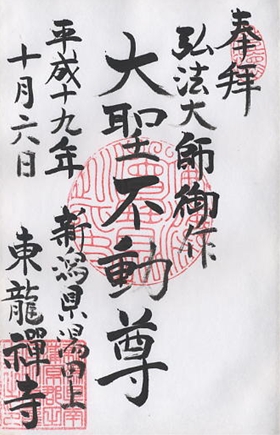 奉拝
弘法大師御作
大聖不動尊
平成十九年
十月六日
新潟県湯田上
東龍禅寺